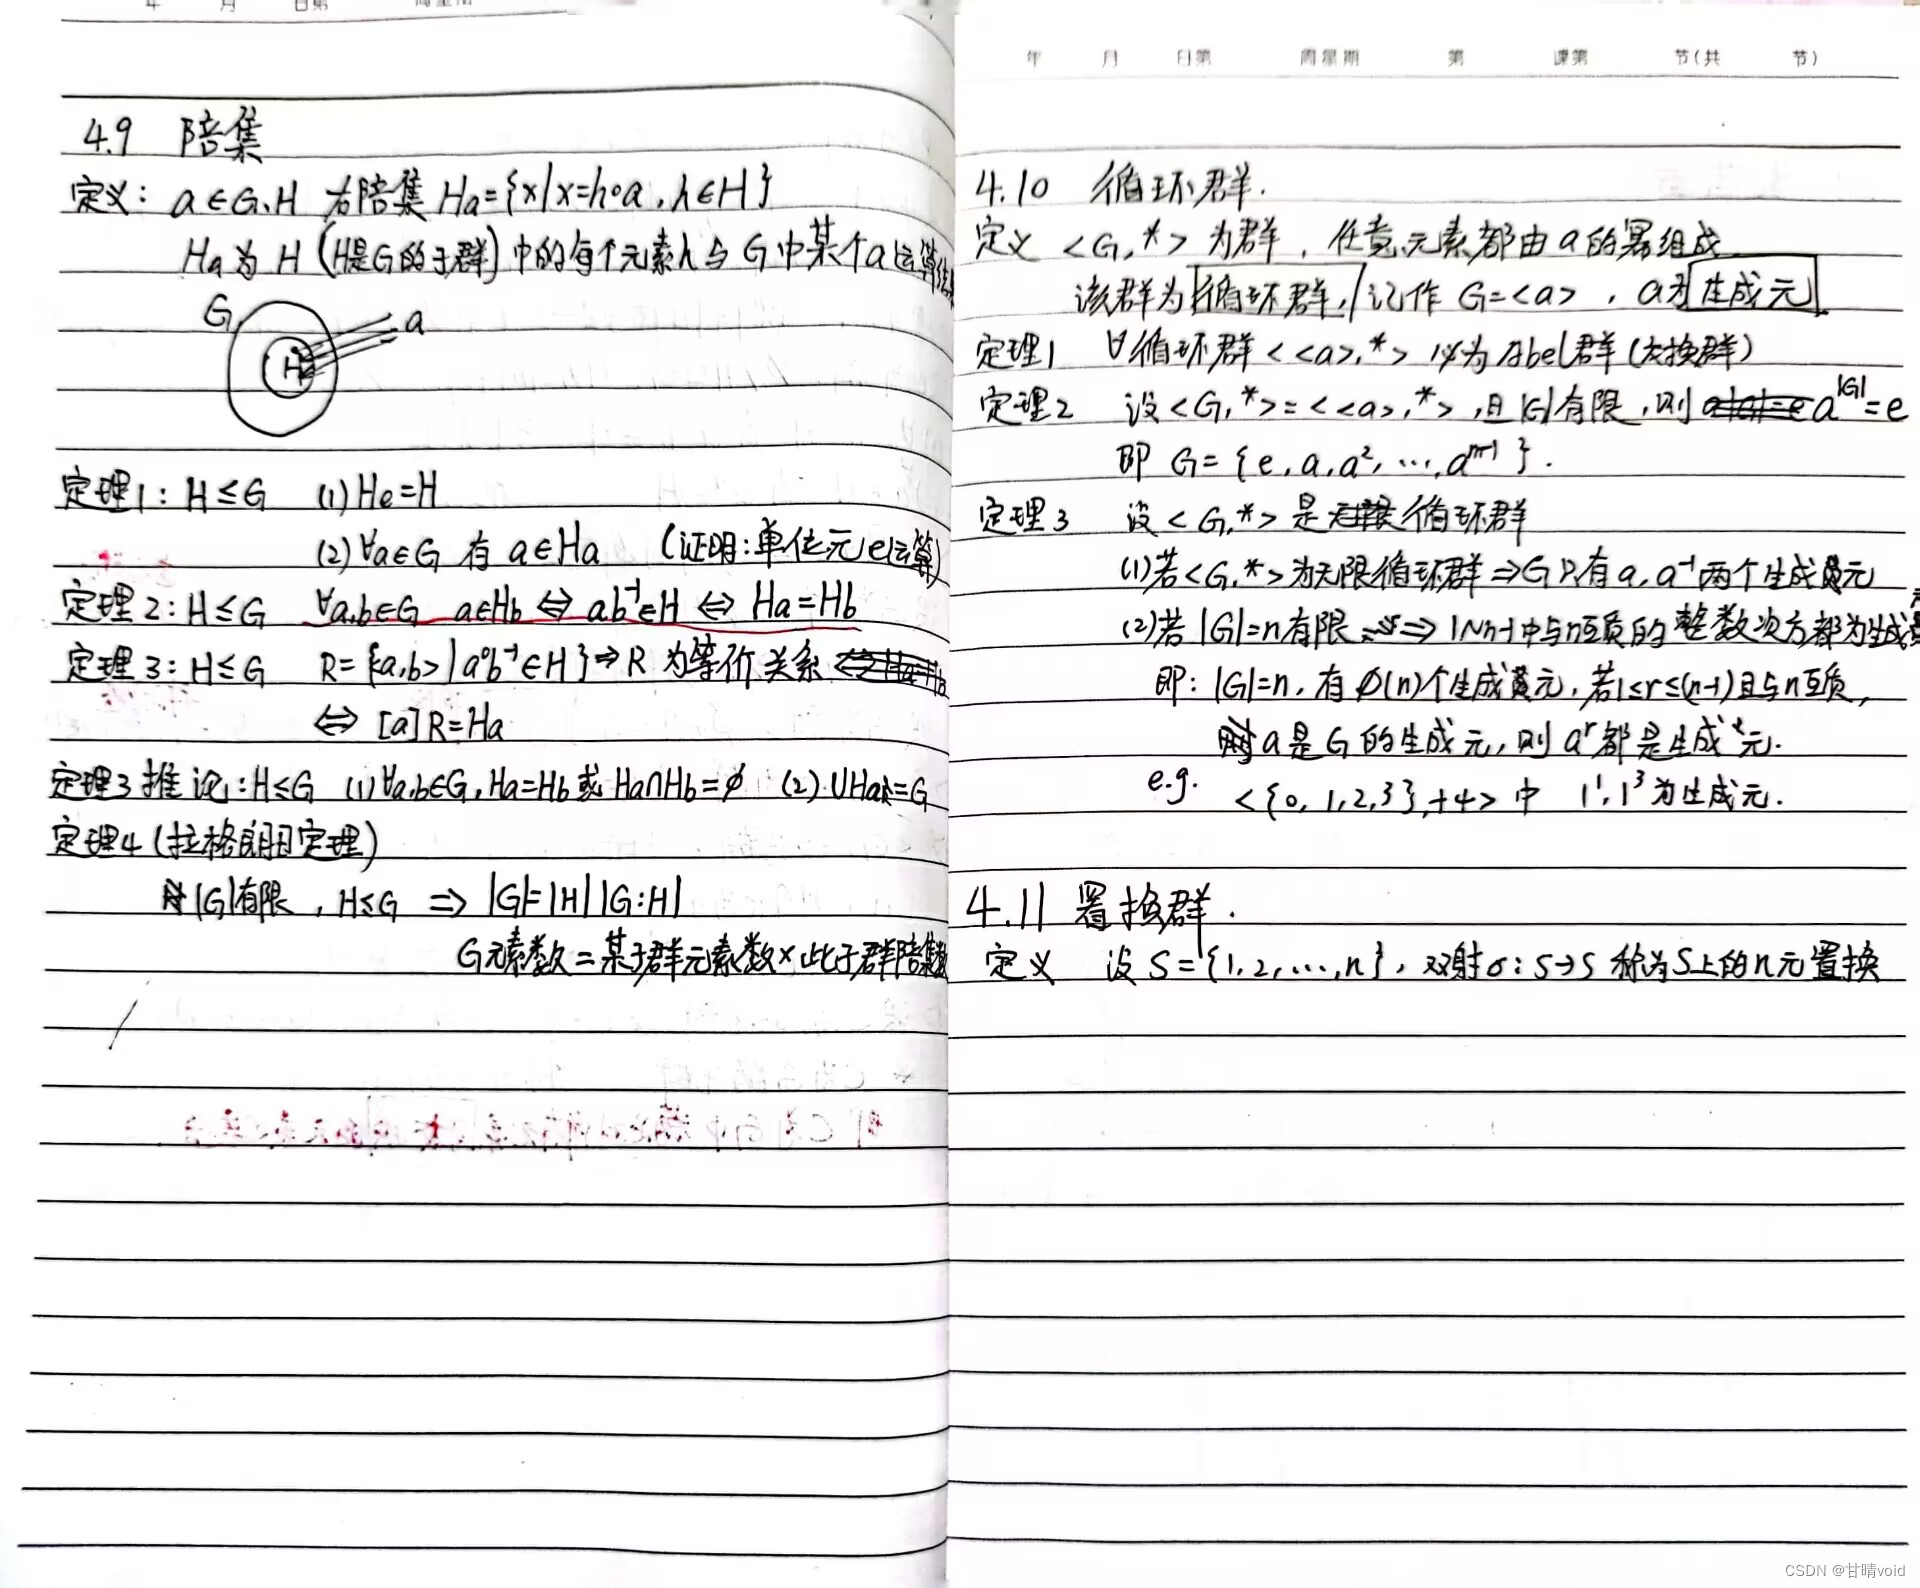 4.9 陪集
定义: a∈G、H 右陪集 Ha={x|x=h∘a, h∈H}
Ha为 H (H是G的子群) 中的每个元素h与 G中某个a运算结果
G a
H
定理1: H≤G (1) He=H
(2) ∀a∈G 有 a∈Ha (证明:单位元e运算)
定理2: H≤G ∀a,b∈G a∈Hb ⇔ ab⁻¹∈H ⇔ Ha=Hb
定理3: H≤G R={a,b>|a∘b⁻¹∈H}⇒R 为等价关系
⇔ [a]R=Ha
定理3推论: H≤G (1) ∀a,b∈G, Ha=Hb 或 Ha∩Hb=∅ (2) ∪Ha=G
定理4 (拉格朗日定理)
|G|有限, H≤G ⇒ |G|=|H||G:H|
G元素数=某子群元素数×此子群陪集数
年 月 日第 周星期 第 课第 节(共 节)
4.10 循环群.
定义 <G,*> 为群, 任意元素都由a的幂组成
该群为循环群, 记作 G=<a>, a为生成元
定理1 ∀循环群<<a>,*> 必为Abel群(交换群)
定理2 设<G,*>=<<a>,*>, 且|G|有限, 则 a^|G|=e
即 G={e,a,a²,…,aⁿ⁻¹}.
定理3 设<G,*>是循环群
(1)若<G,*>为无限循环群⇒G只有a,a⁻¹两个生成元
(2)若|G|=n有限 ⇒ 1~n-1中与n互质的整数次方都为生成元
即: |G|=n, 有φ(n)个生成元, 若1≤r≤(n-1)且与n互质,
a是G的生成元, 则 aʳ都是生成元.
e.g. <{0,1,2,3},+4>中 1¹,1³为生成元.
4.11 置换群.
定义 设S={1,2,…,n}, 双射σ:S→S 称为S上的n元置换
CSDN @甘晴void